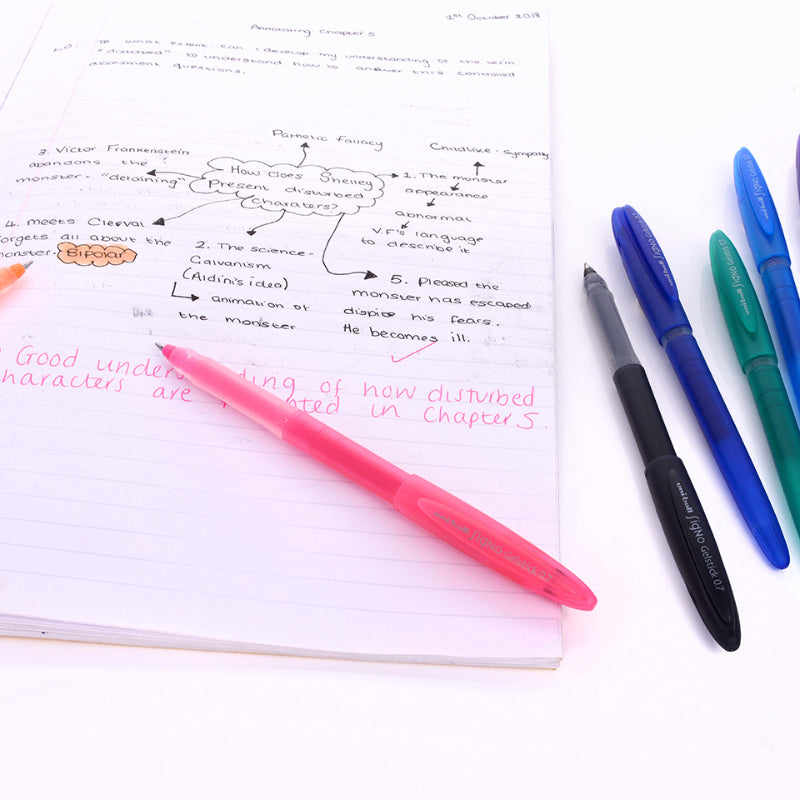 1st October 2013
Annotating Chapter 5
LO: To what extent can I develop my understanding of the term
"disturbed" to understand how to answer this controlled
assesment questions.
Pathetic fallacy
Childlike - Sympathy
3. Victor Frankenstein
abandons the
monster. - "detaining"
How does Shelley
Present disturbed
charaters?
1. The monster
appearance
abnormal
V.F's language
to describe it
4. meets Clerval
forgets all about the
monster. Bipolar
2. The science -
Galvanism
(Aldini's idea)
animation of
the monster
5. Pleased the
monster has escaped
dispite his fears.
He becomes ill.
Good understanding of how disturbed
characters are in Chapter 5.
uni-ball SigNO Gelstick 0.7
uni-ball SigNO Gelstick 0.7
uni-ball SigNO Gelstick 0.7
uni-ball SigNO Gelstick 0.7
uni-ball SigNO Gelstick 0.7